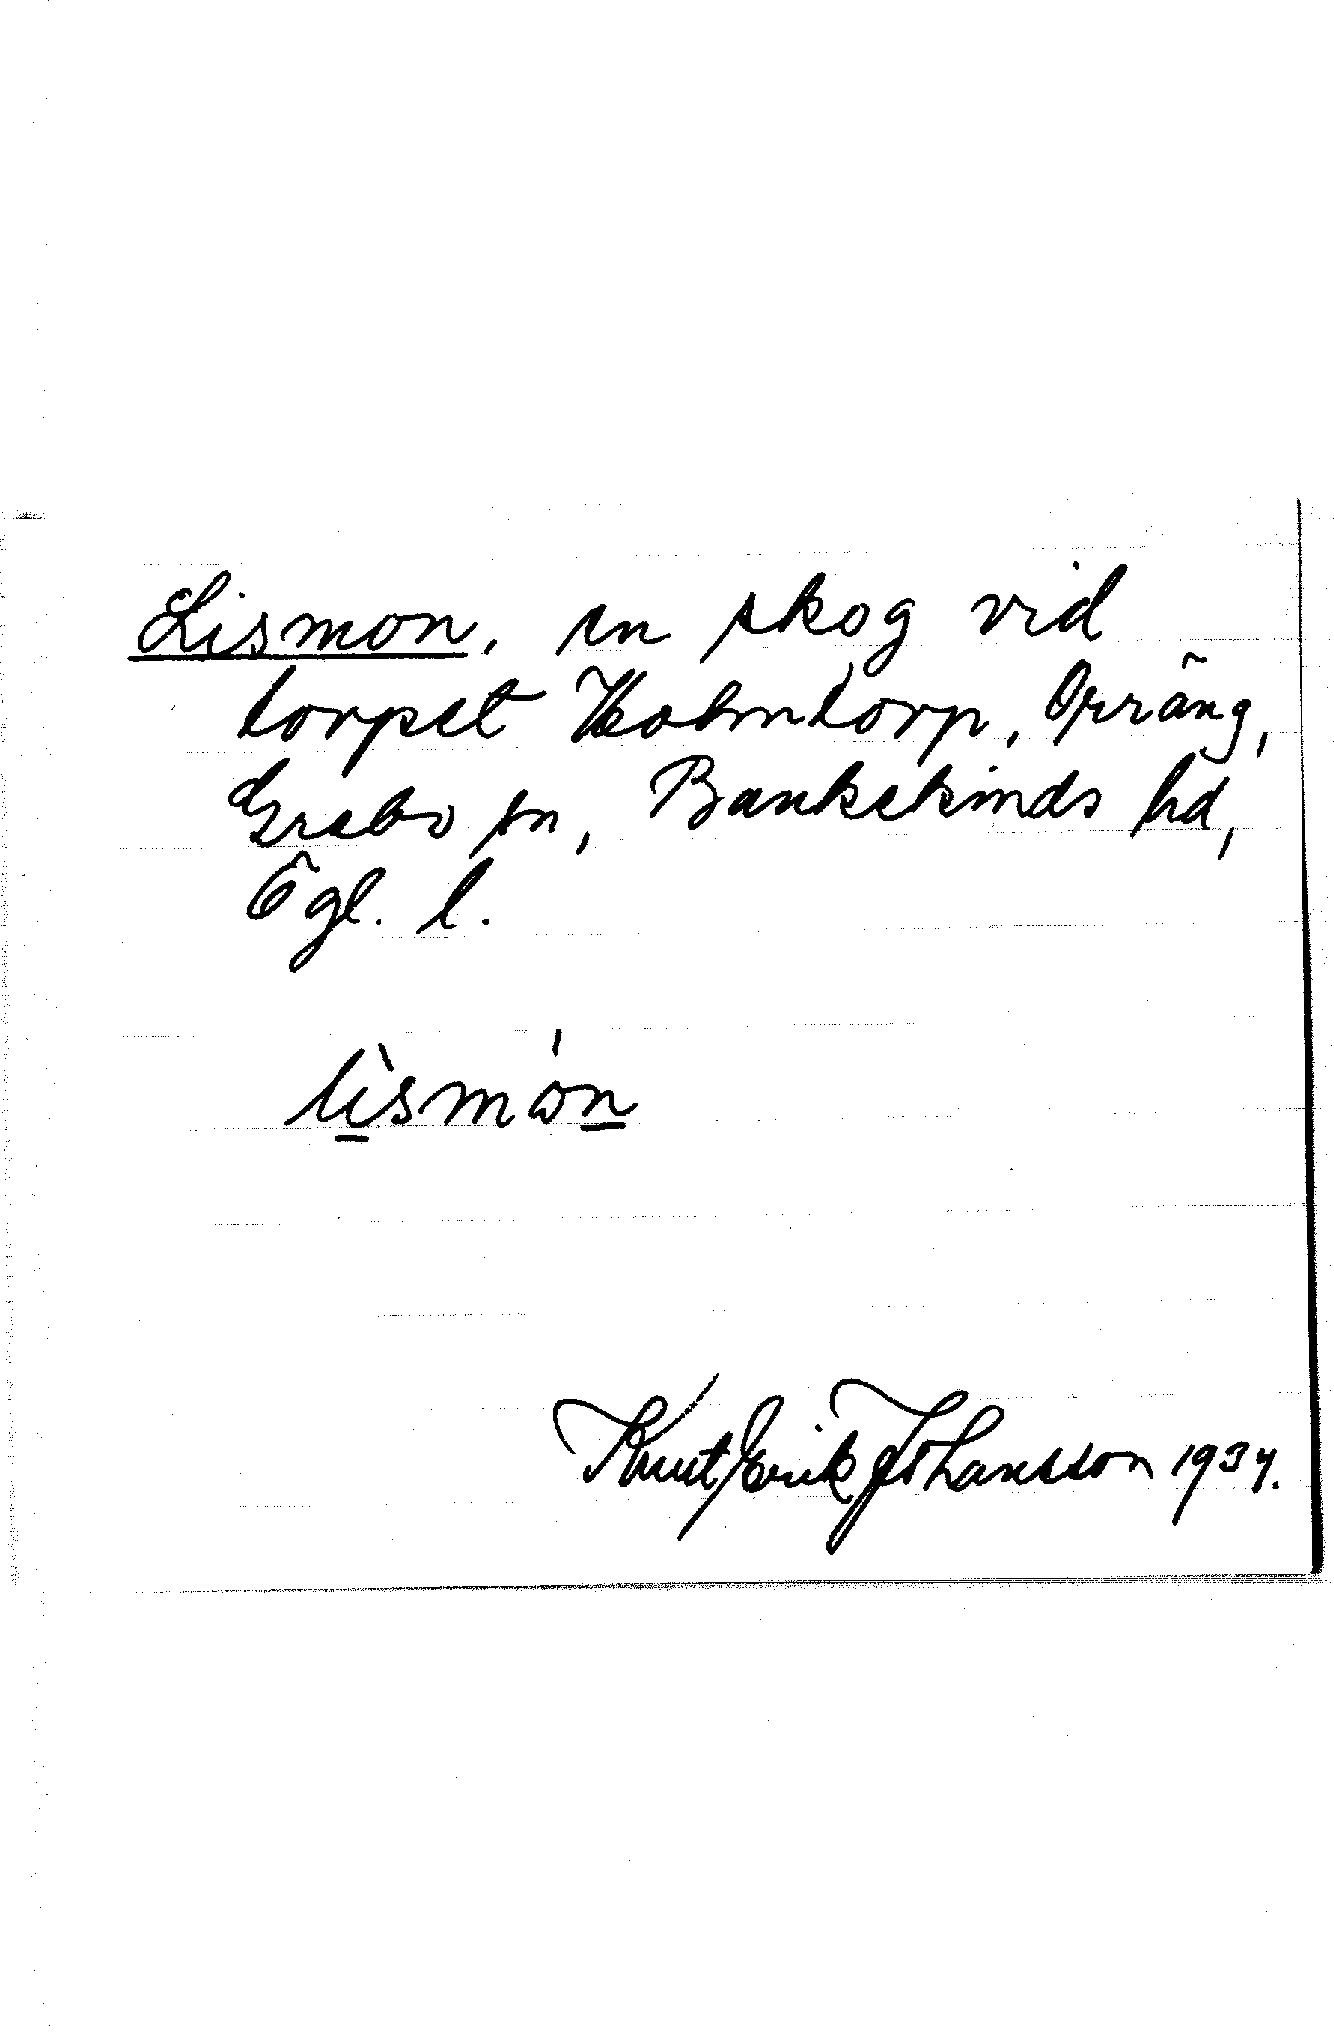 Lismon, en skog vid
torpet Holmtorp, Orräng,
Grebo sn, Bankekinds hd,
Ögl. l.
lìsmón
Knut Erik Johansson 1934.